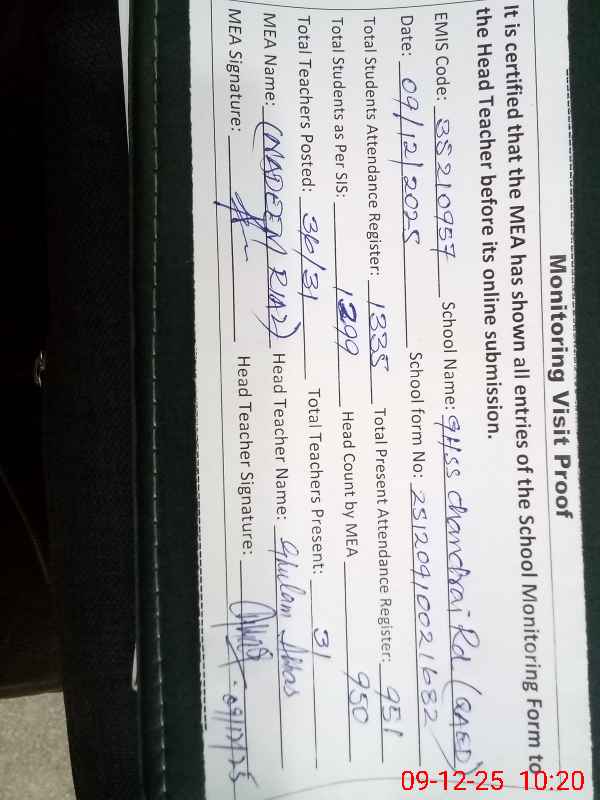 Monitoring Visit Proof
It is certified that the MEA has shown all entries of the School Monitoring Form to
the Head Teacher before its online submission.
EMIS Code: 35210957 School Name: GHSS Chandrai Rd (QAED)
Date: 09/12/2025 School form No: 251209100021682
Total Students Attendance Register: 1335 Total Present Attendance Register: 951
Total Students as Per SIS: 1299 Head Count by MEA 950
Total Teachers Posted: 36/31 Total Teachers Present: 31
MEA Name: (NADEEM RIAZ) Head Teacher Name: Ghulam Abbas
MEA Signature: Head Teacher Signature: 09/12/25
09-12-25 10:20